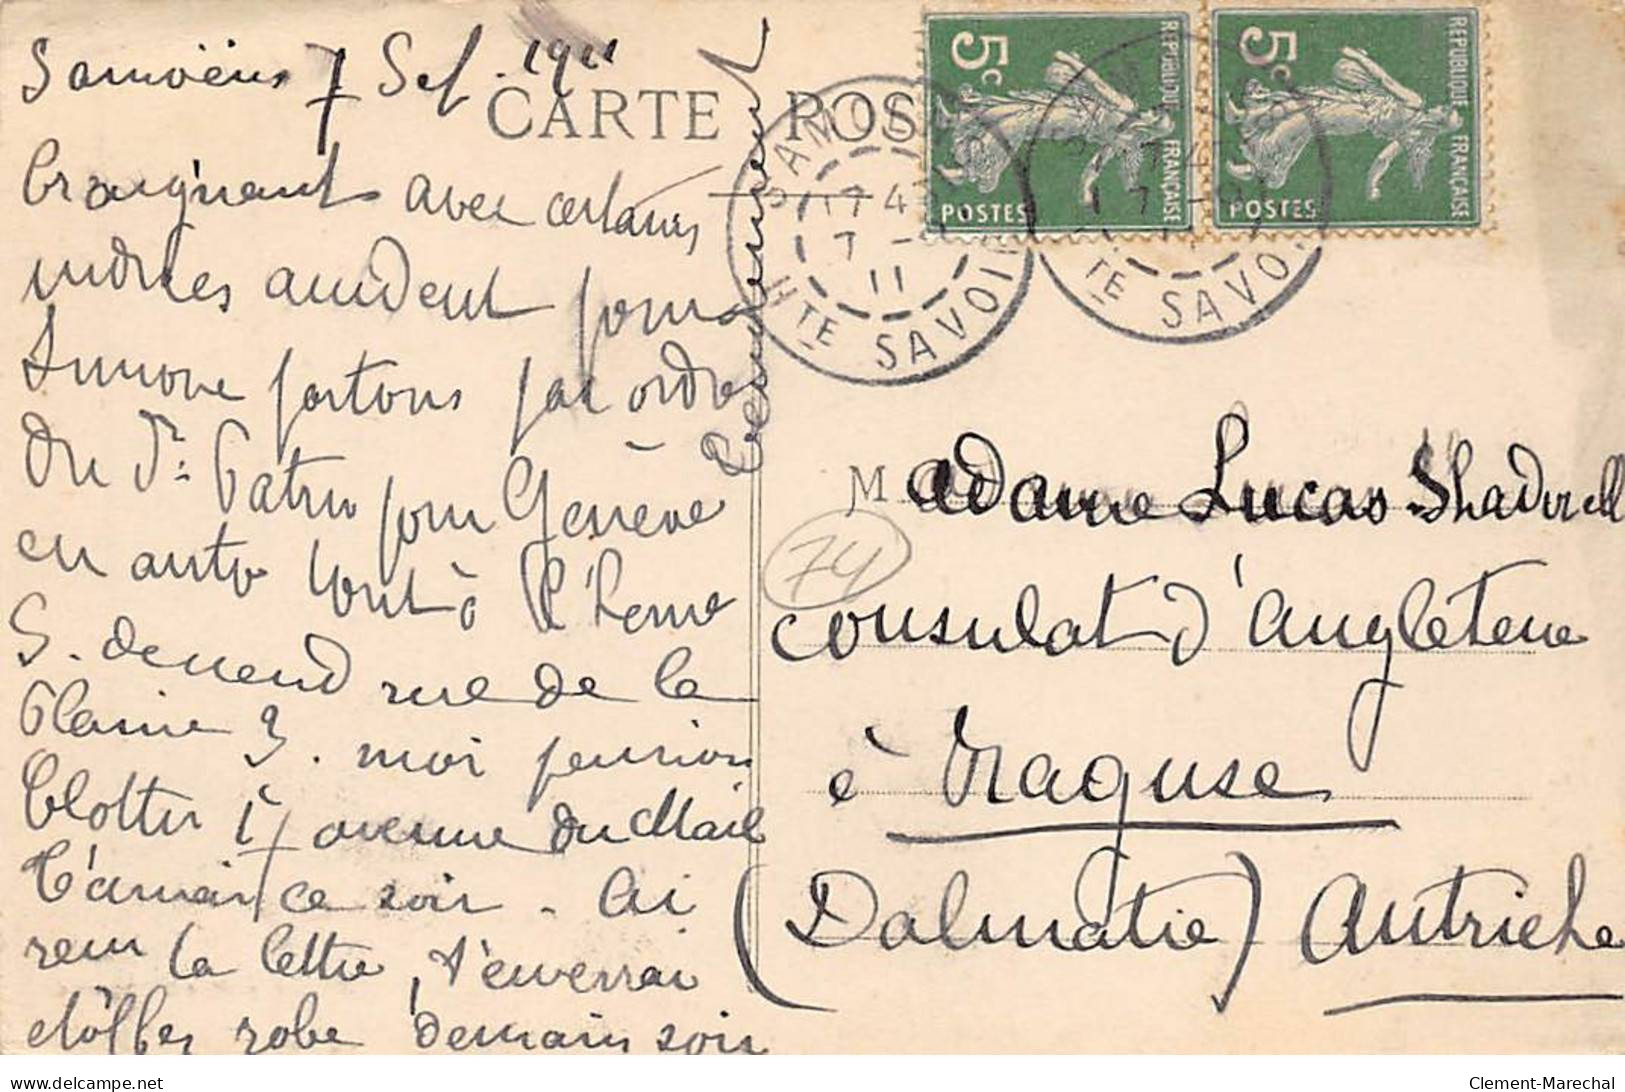 Samoëns 7 Sep. 1911
CARTE POS
Craignant avec certains
indices accident pour
Simone partons par ordre
du Dr. pour Genève
en auto tout à l'heure
S. descend rue de la
Plaine 3. moi pension
17 avenue du Mail
ce soir - Ai
reçu ta lettre, t'enverrai
étoffes robe demain soir
Tendrement
5c
REPUBLIQUE FRANÇAISE
POSTES
5c
REPUBLIQUE FRANÇAISE
POSTES
SAMOËNS
17 4
7 -
11
HTE SAVOIE
HTE SAVOIE
Madame Lucas-Shadwell
74
Consulat d'Angleterre
à Raguse
(Dalmatie) Autriche
www.delcampe.net
Clement-Marechal